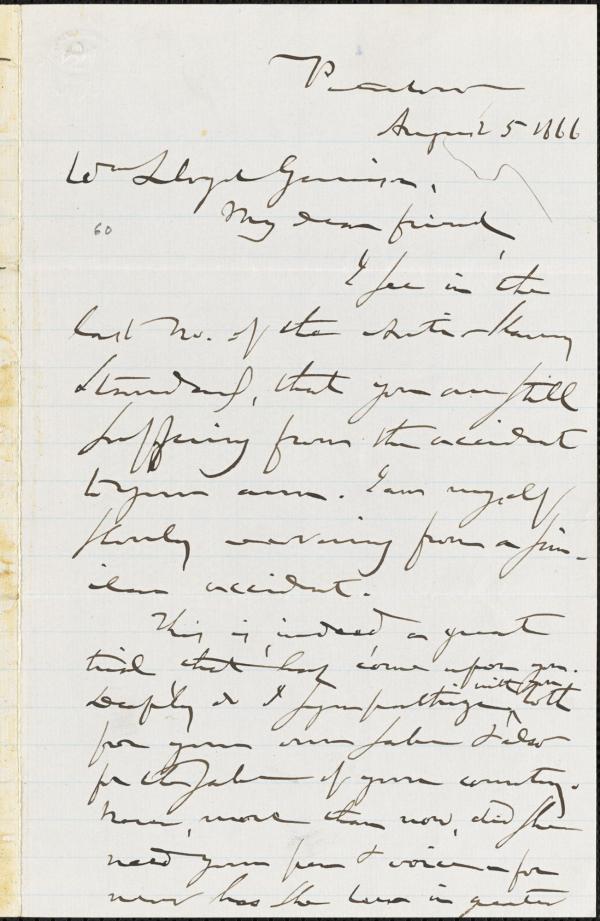 August 5 1866
Wm Lloyd Garrison,
My dear friend,
60
I see in the
last No. of the Anti-Slavery
Standard, that you are still
suffering from the accident
to your arm. I am myself
slowly recovering from a sim-
ilar accident.
This is, indeed, a great
trial that has come upon you.
Deeply do I sympathize with you, both
for your own sake & also
for the sake of your country.
Never, more than now, did she
need your pen & voice – for
never has she been in greater